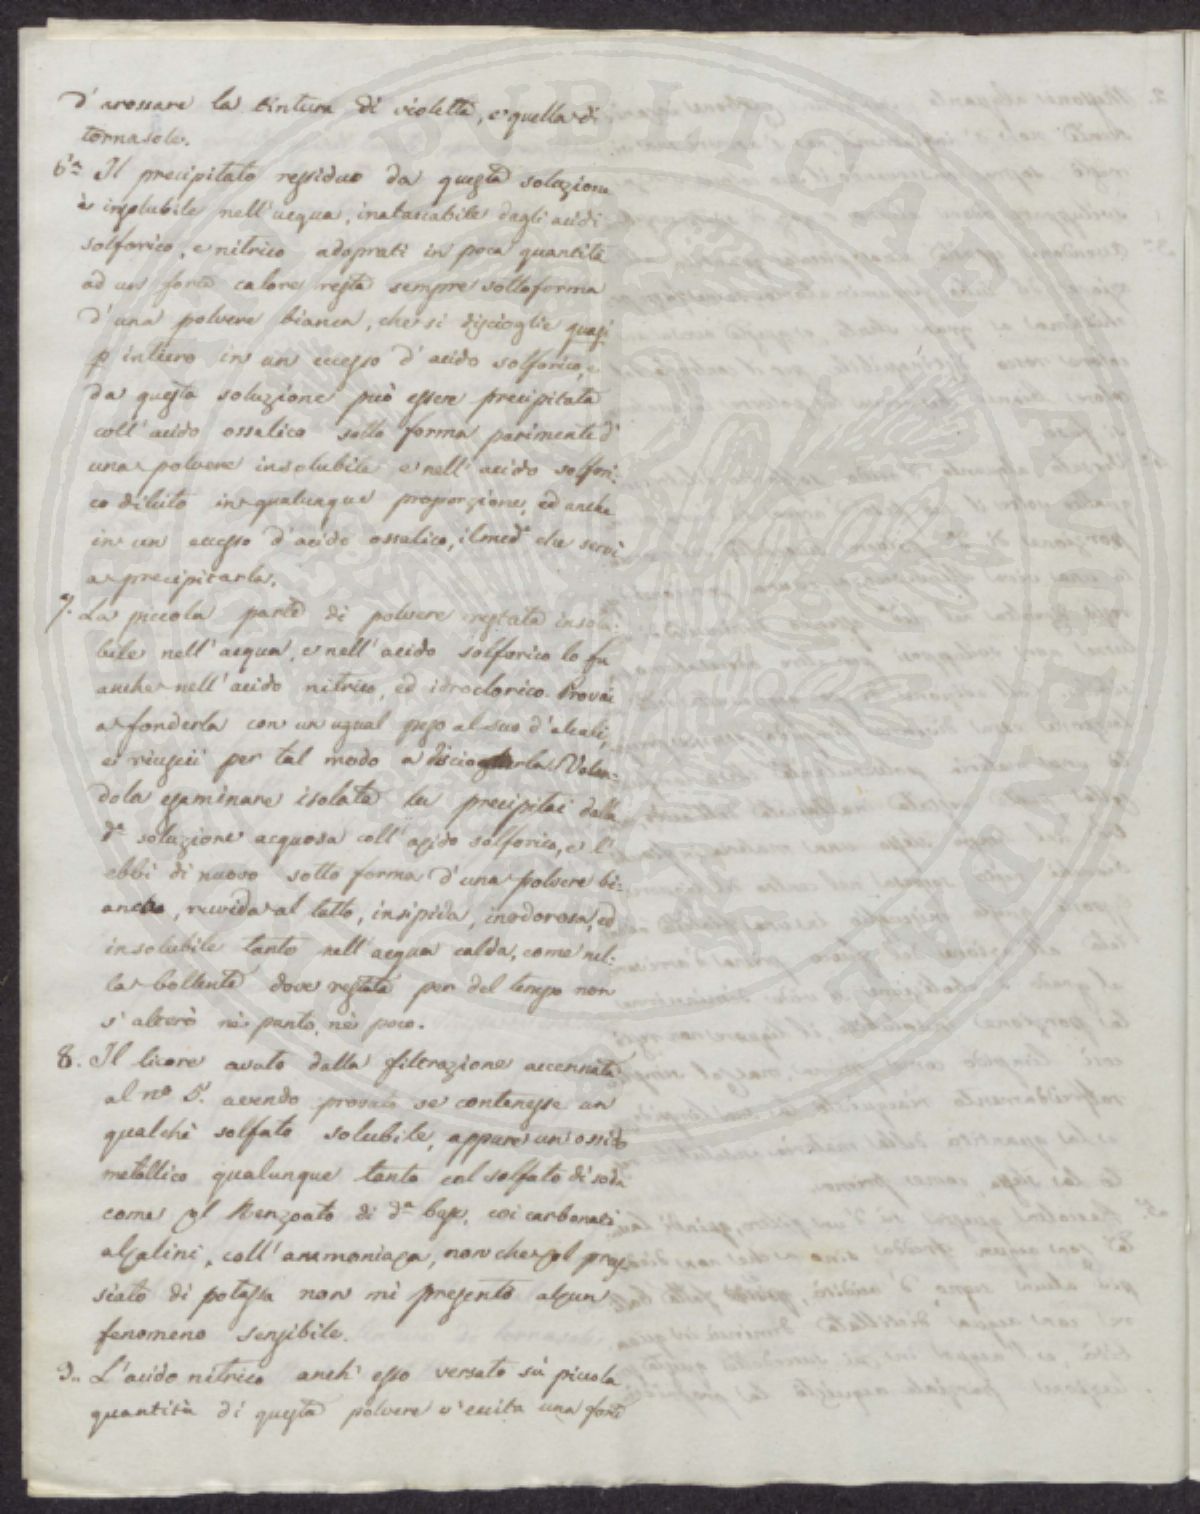 d'arossare la tintura di violetta, e quella di
tornasole.
6.ª Il precipitato ressiduo da questa soluzione
è insolubile nell'acqua, inatacabile dagli acidi
solforico, e nitrico adoprati in poca quantità
ad un forte calore resta sempre sottoforma
d'una polvere bianca, che si discioglie quasi
p intiero in un eccesso d'acido solforico, e
da questa soluzione può essere precipitata
coll'acido ossalico sotto forma parimente d'
una polvere insolubile e nell'acido solfori:
co diluto in qualunque proporzione, ed anche
in un eccesso d'acido ossalico, il med.º che servì
a precipitarla.
7. La piccola parte di polvere restata insolu:
bile nell'acqua, e nell'acido solforico lo fu
anche nell'acido nitrico, ed idroclorico. Provai
a fonderla con un ugual peso al suo d'alcali,
e riuscii per tal modo a discioglierla. Volen:
dola esaminare isolata la precipitai dalla
d.ª soluzione acquosa coll'acido solforico, e l'
ebbi di nuovo sotto forma d'una polvere bi:
anca, ruvida al tatto, insipida, inodorosa, ed
insolubile tanto nell'acqua calda, come nel:
la bollente dove restata per del tempo non
s'alterò nè punto, nè poco.
8. Il licore avuto dalla filtrazione accennata
al nº 5. avendo provato se contenesse un
qualche solfato solubile, appure un ossido
metallico qualunque tanto col solfato di soda
come col Benzoato di d.ª base, coi carbonati
alcalini, coll'ammoniaca, non che col prus
siato di potassa non mi presentò alcun
fenomeno sensibile.
9. L'acido nitrico anch'esso versato sù piccola
quantità di questa polvere v'eccita una forte